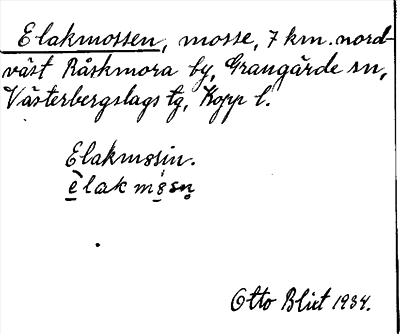 Elakmossen, mosse, 7 km. nord-
väst Råskmora by, Grangärde sn,
Västerbergslags tg, Kopp l.
Elakmossin.
Otto Blixt 1934.